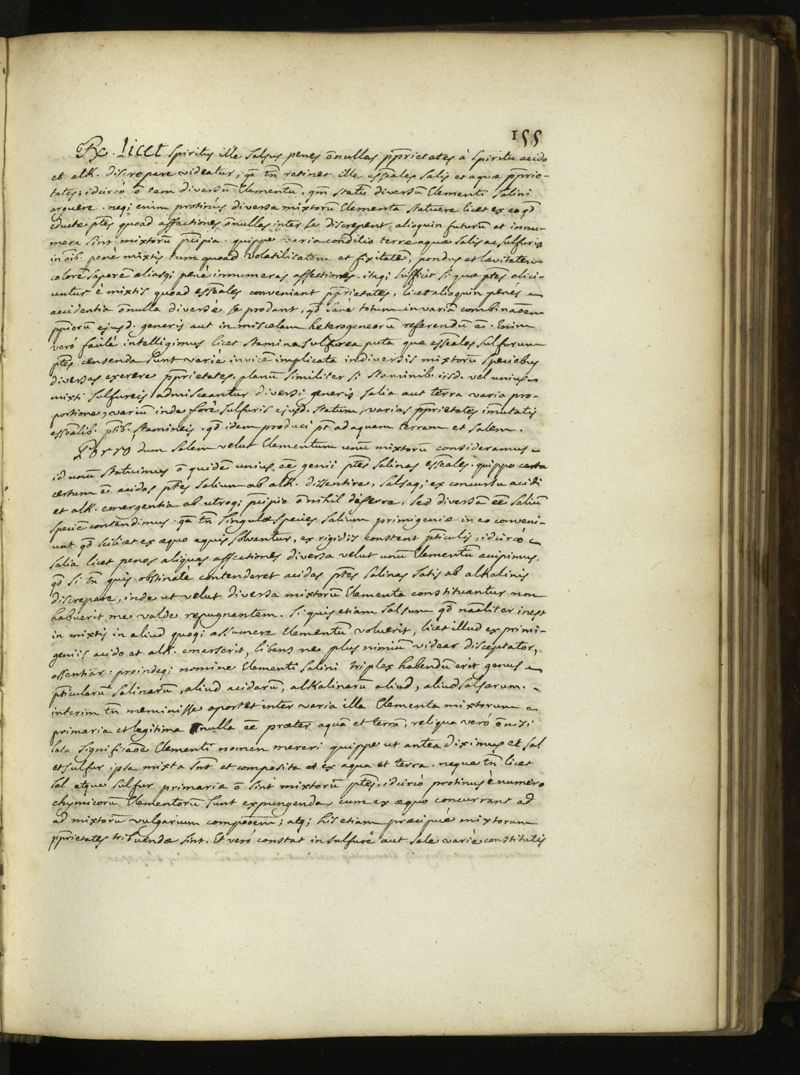 155
Rx. Licet spiritus ille salsus penes ōnullas p̄prietates à spiritu acido
et alk. discrepare videatur, qa tn̄ retinet ille essēales salis et aquæ p̄prie-
tates, idcirco ō tam diversū Elementū, qm̄ statū diversū Elementi salini
arguere. neq; enim protinùs diversa mixtorū Elementa statuere licet ex eo qd̄
eductæ p̄tes quoad affectiones ōnullas inter se discrepent, alioquin futurū et innu-
mera sint mixtorū p̄cipia. quippe varia conditio terræ aquæ salis ac sulfuris
in oīb. penè mixtis tum quoad volatilitatem et fixitatē, pondus et levitatem
colorē saporē aliasq; penè innumeras affectiones. itaq; sufficit si quæ p̄tes elici-
untur è mixtis quoad essēales conveniant p̄prietates, licet alioquin penes
accidentia ōnulla diversè se prodant, qd̄ sanè totum in variā combinaōem
p̄piorū ejusd. generis aut in miscelam heterogeneorū referendū ē. Enim
verò facilè intelligimus licet stamina sulfurea puta quæ essēales sulfurum
p̄tes censenda sunt variè invicē implicata in diversis mixtorū speciebus
diversas exerere p̄prietates. planū similiter si staminib. iisd. vel unius
mixti sulfureis admisceantur diversi generis salia aut terra varia pro-
portione, variū inde forè sulfuris ejusd. statum, varias p̄prietates imutatis
essēalib. p̄tib. stamineis. qd̄ idem produci pt̄ ad aquam terram et salem.
dum salem velut Elementum unū mixtorū consideramus
id unū statuimus ō quidē unius ēē genii p̄tes salinas essēales. quippe certo
certum ē acidas p̄tes salium ab alk. dissentire, salsaq; ex concursu acidi
et alk. emergentia ab utroq; p̄cipio ōnihil differre, sed diversā ēē saliū
speciē contendimus. qa tn̄ singulæ species salium primigeniæ in eo conveni-
unt qd̄ scilicet ex æquo aquis solvantur, ex rigidis constent p̄ticulis, idcirco
salia licet penes aliquas affectiones diversa velut unū Elementū accipimus.
qd̄ si tn̄ quis obstinatè contenderet acidas p̄tes salinas satis ab alkalinis
discrepare, inde ut velut diversa mixtorū Elementa constituantur non
habuerit me valde repugnantem. si quis etiam salsum qd̄ realiter inest
in mixtis in aliud quoq; assumere Elementū voluerit, licet illud ex primi-
geniis acido et alk. emerserit, libens ne plus nimiū videar disceptator,
assentiar: proindeq; nomine Elementi salini triplex habendū erit genus
p̄ticularū salinarū, aliud acidarū, alkalinarū aliud, aliud salsarum.
interim tn̄ meminisse oportet inter varia illa Elementa mixtorum
primaria et legitima nulla ēē præter aquā et terrā, reliqua verò ōnisi
lata significaōe Elementi nomen mereri quippe ut antea diximus et sal
et sulfur ipsa mixta sn̄t et composita et ex aqua et terra. neque tn̄ licet
sal atque sulfur primariæ ō sint mixtorū p̄tes, idcircò protinus è numero
chymicorū Elementorū sunt expungenda cum ex æquo concurrant ad
ad mixtorū vulgarium compōōem; atq; his etiam præcipuè mixtorum
p̄prietates tribuendæ sint. Et verò constat in sulfure aut sale variè constitutis